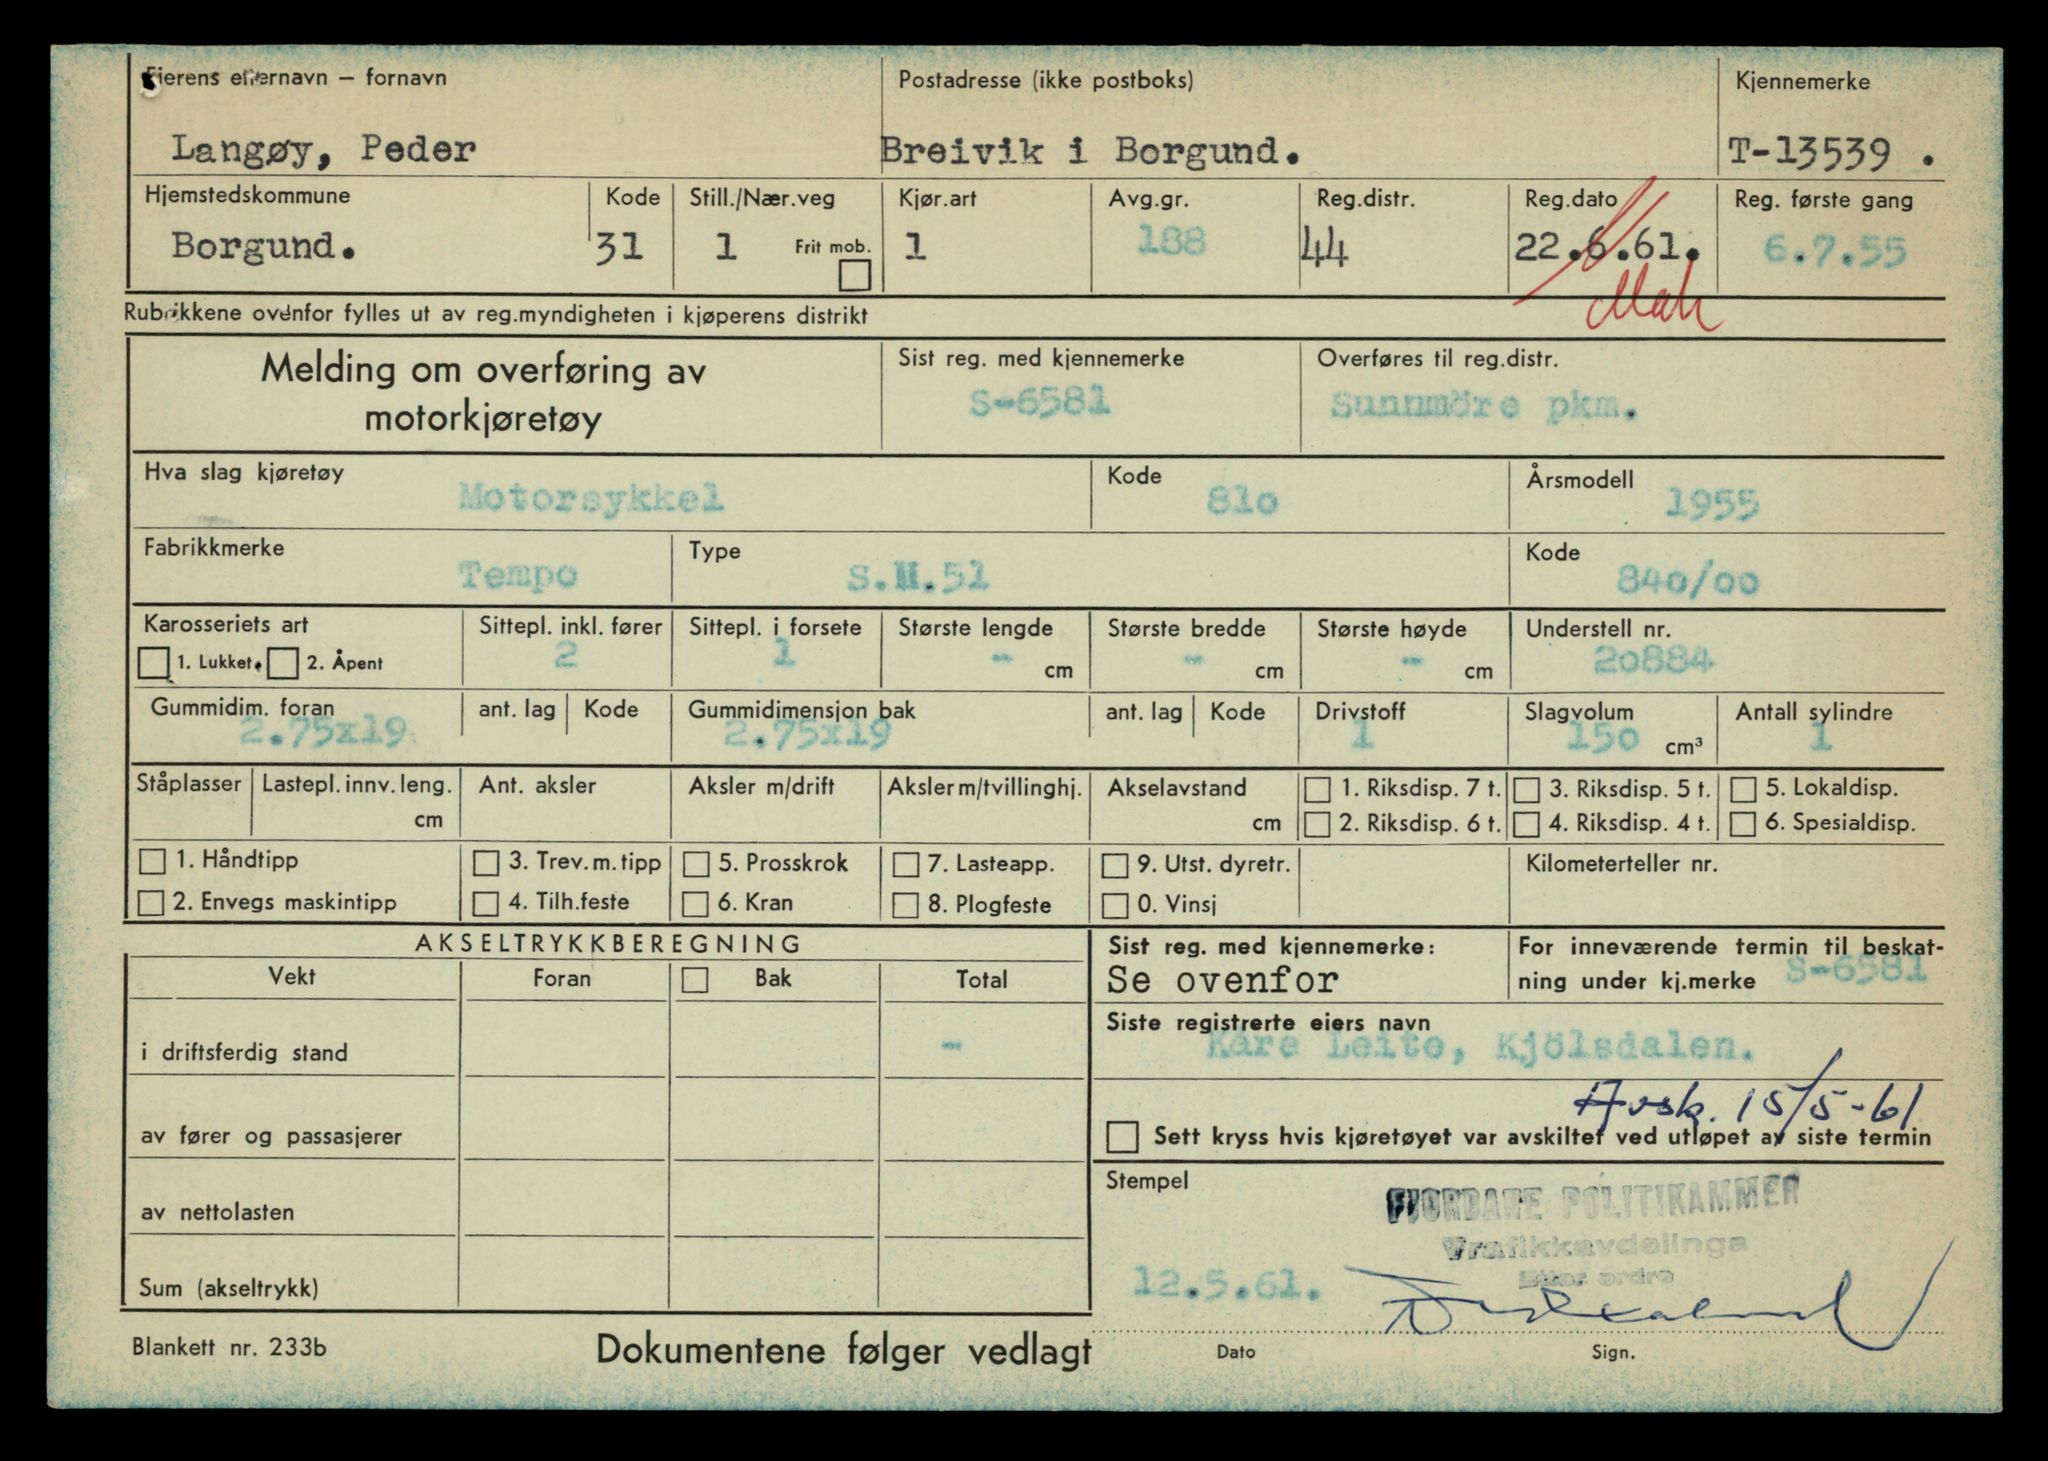 Eierens etternavn – fornavn Postadresse (ikke postboks) Kjennemerke
Langøy, Peder Breivik i Borgund. T-13539 .
Hjemstedskommune Kode Still./Nær.veg Kjør.art Avg.gr. Reg.distr. Reg.dato Reg. første gang
Borgund. 31 1 Frit mob. 1 188 44 22.6.61. 6.7.55
Rubrikkene ovenfor fylles ut av reg.myndigheten i kjøperens distrikt
Melding om overføring av Sist reg. med kjennemerke Overføres til reg.distr.
motorkjøretøy S-6581 Sunnmöre pkm.
Hva slag kjøretøy Kode Årsmodell
Motorsykkel 81o 1955
Fabrikkmerke Type Kode
Tempo S.M.51 84o/oo
Karosseriets art Sittepl. inkl. fører Sittepl. i forsete Største lengde Største bredde Største høyde Understell nr.
1. Lukket. 2. Åpent 2 1 - cm - cm - cm 2o884
Gummidim. foran ant. lag Kode Gummidimensjon bak ant. lag Kode Drivstoff Slagvolum Antall sylindre
2.75x19 2.75x19 1 15o cm³ 1
Ståplasser Lastepl. innv. leng. Ant. aksler Aksler m/drift Aksler m/tvillinghj. Akselavstand 1. Riksdisp. 7 t. 3. Riksdisp. 5 t. 5. Lokaldisp.
cm cm 2. Riksdisp. 6 t. 4. Riksdisp. 4 t. 6. Spesialdisp.
1. Håndtipp 3. Trev. m. tipp 5. Prosskrok 7. Lasteapp. 9. Utst. dyretr. Kilometerteller nr.
2. Envegs maskintipp 4. Tilh.feste 6. Kran 8. Plogfeste 0. Vinsj
AKSELTRYKKBEREGNING Sist reg. med kjennemerke: For inneværende termin til beskat-
Vekt Foran Bak Total Se ovenfor ning under kj.merke S-6581
Siste registrerte eiers navn
i driftsferdig stand - Kåre Leite, Kjölsdalen.
Avsk. 15/5-61
av fører og passasjerer Sett kryss hvis kjøretøyet var avskiltet ved utløpet av siste termin
Stempel
av nettolasten FJORDANE POLITIKAMMER
Trafikkavdelinga
Sum (akseltrykk) 12.5.61. Etter ordre
Blankett nr. 233b Dokumentene følger vedlagt Dato Sign.